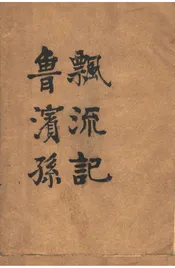 魯濱孫
飄流記